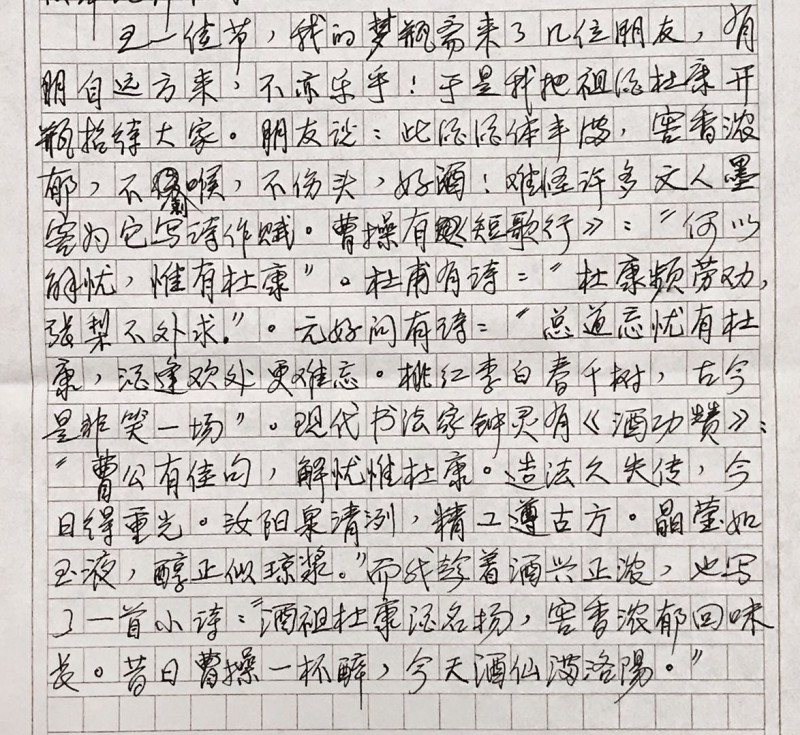 五一佳节，我的梦瓶斋来了几位朋友，有
朋自远方来，不亦乐乎！于是我把祖酒杜康开
瓶招待大家。朋友说：此酒酒体丰满，窖香浓
郁，不刺喉，不伤头，好酒！难怪许多文人墨
客为它写诗作赋。曹操有《短歌行》：“何以
解忧，惟有杜康”。杜甫有诗：“杜康频劳劝，
张梨不外求。”。元好问有诗：“总道忘忧有杜
康，酒逢欢处更难忘。桃红李白春千树，古今
是非笑一场”。现代书法家钟灵有《酒功赞》：
“曹公有佳句，解忧惟杜康。造法久失传，今
日得重光。汝阳泉清冽，精工遵古方。晶莹如
玉液，醇正似琼浆。”而我趁着酒兴正浓，也写
了一首小诗：“酒祖杜康酒名扬，窖香浓郁回味
长。昔日曹操一杯醉，今天酒仙满洛陽。”